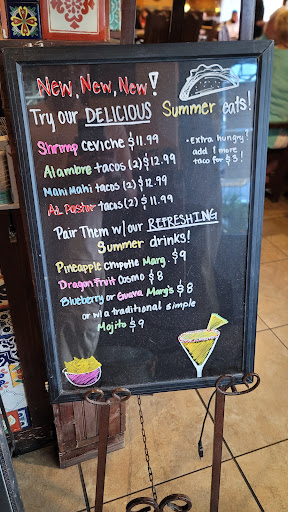 New, New, New!
Try our DELICIOUS Summer eats!
Shrimp ceviche $11.99
Alambre tacos (2) $12.99
Mahi Mahi tacos (2) $12.99
Al Pastor tacos (2) $11.99
• Extra hungry?
add 1 more
taco for $3!
Pair Them w/our REFRESHING
Summer drinks!
Pineapple chipotle Marg. $9
Dragon Fruit Cosmo $8
Blueberry or Guava Marg's $8
or w/ a traditional simple
Mojito $9